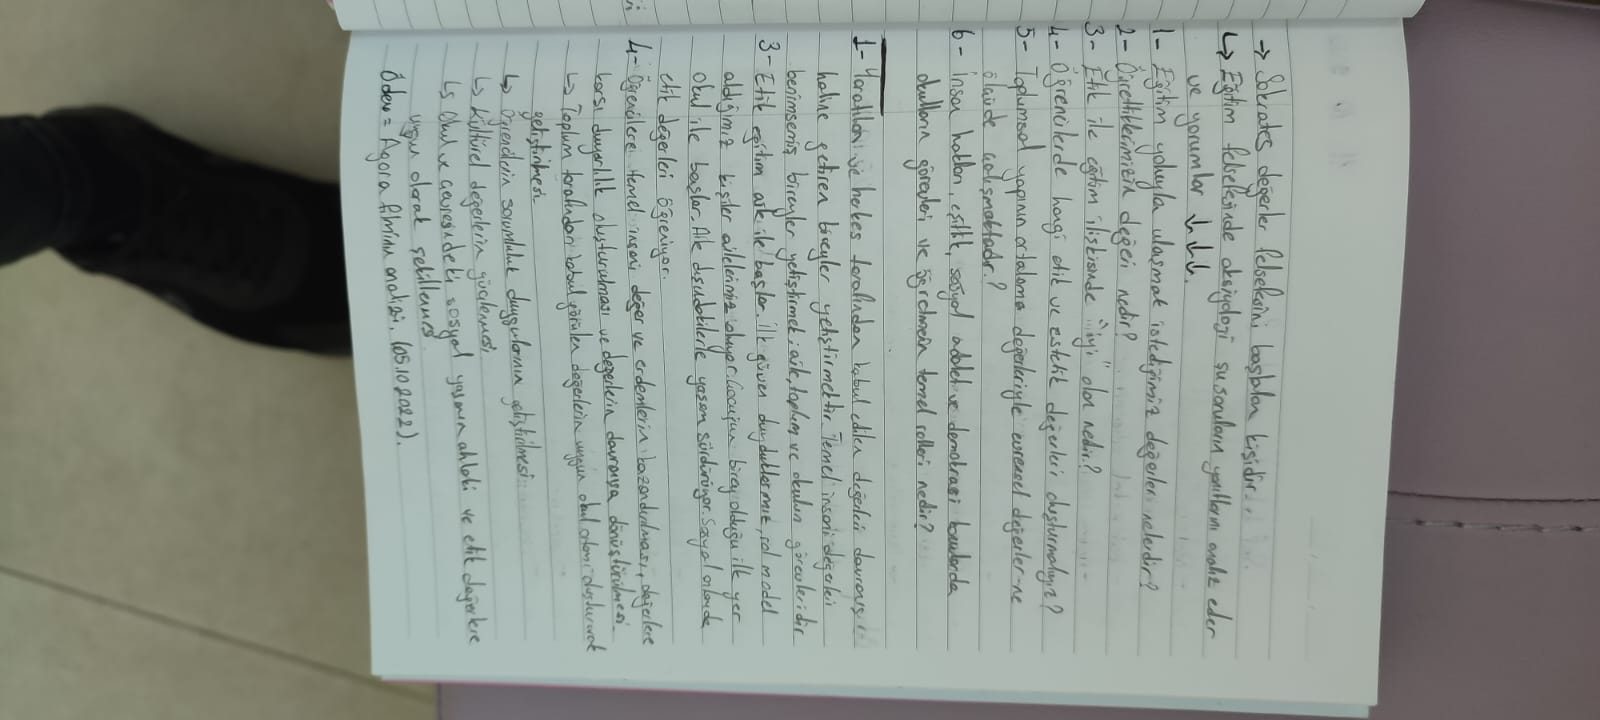 → Sokrates değerler felsefesini başlatan kişidir.
↳ Eğitim felsefesinde aksiyoloji şu soruların yanıtlarını analiz eder
ve yorumlar ↓↓↓.
1- Eğitim yoluyla ulaşmak istediğimiz değerler nelerdir?
2- Öğrettiklerimizin değeri nedir?
3- Etik ile eğitim ilişkisinde "iyi" olan nedir?
4- Öğrencilerde hangi etik ve estetik değerleri oluşturmalıyız?
5- Toplumsal yapının ortalama değerleriyle evrensel değerler ne
ölçüde çalışmaktadır?
6- İnsan hakları, eşitlik, sosyal adalet ve demokrasi konularında
okulların görevleri ve öğretmenin temel rolleri nedir?
1- Yaratıcı ve herkes tarafından kabul edilen değerleri davranış
haline getiren bireyler yetiştirmektir. Temel insani değerleri
benimsemiş bireyler yetiştirmek; aile, toplum ve okulun görevleridir
3- Etik eğitim aile ile başlar. İlk güven duyduklarımız, rol model
aldığımız kişiler ailelerimiz oluyor. Çocuğun birey olduğu ilk yer
okul ile başlar. Aile dışındakilerle yaşam sürdürüyor. Sosyal anlamda
etik değerleri öğreniyor.
4- Öğrencilere temel insani değer ve erdemlerin kazandırılması, değerlere
karşı duyarlılık oluşturulması ve değerlerin davranışa dönüştürülmesi
↳ Toplum tarafından kabul görülen değerlerin uygun okul ortamı oluşturarak
geliştirilmesi
↳ Öğrencilerin sorumluluk duygularının geliştirilmesi
↳ Kültürel değerlerin güçlenmesi
↳ Okul ve çevresindeki sosyal yaşamın ahlaki ve etik değerlere
uygun olarak şekillenmesi
Ödev = Agora filminin analizi. (05.10.2022).